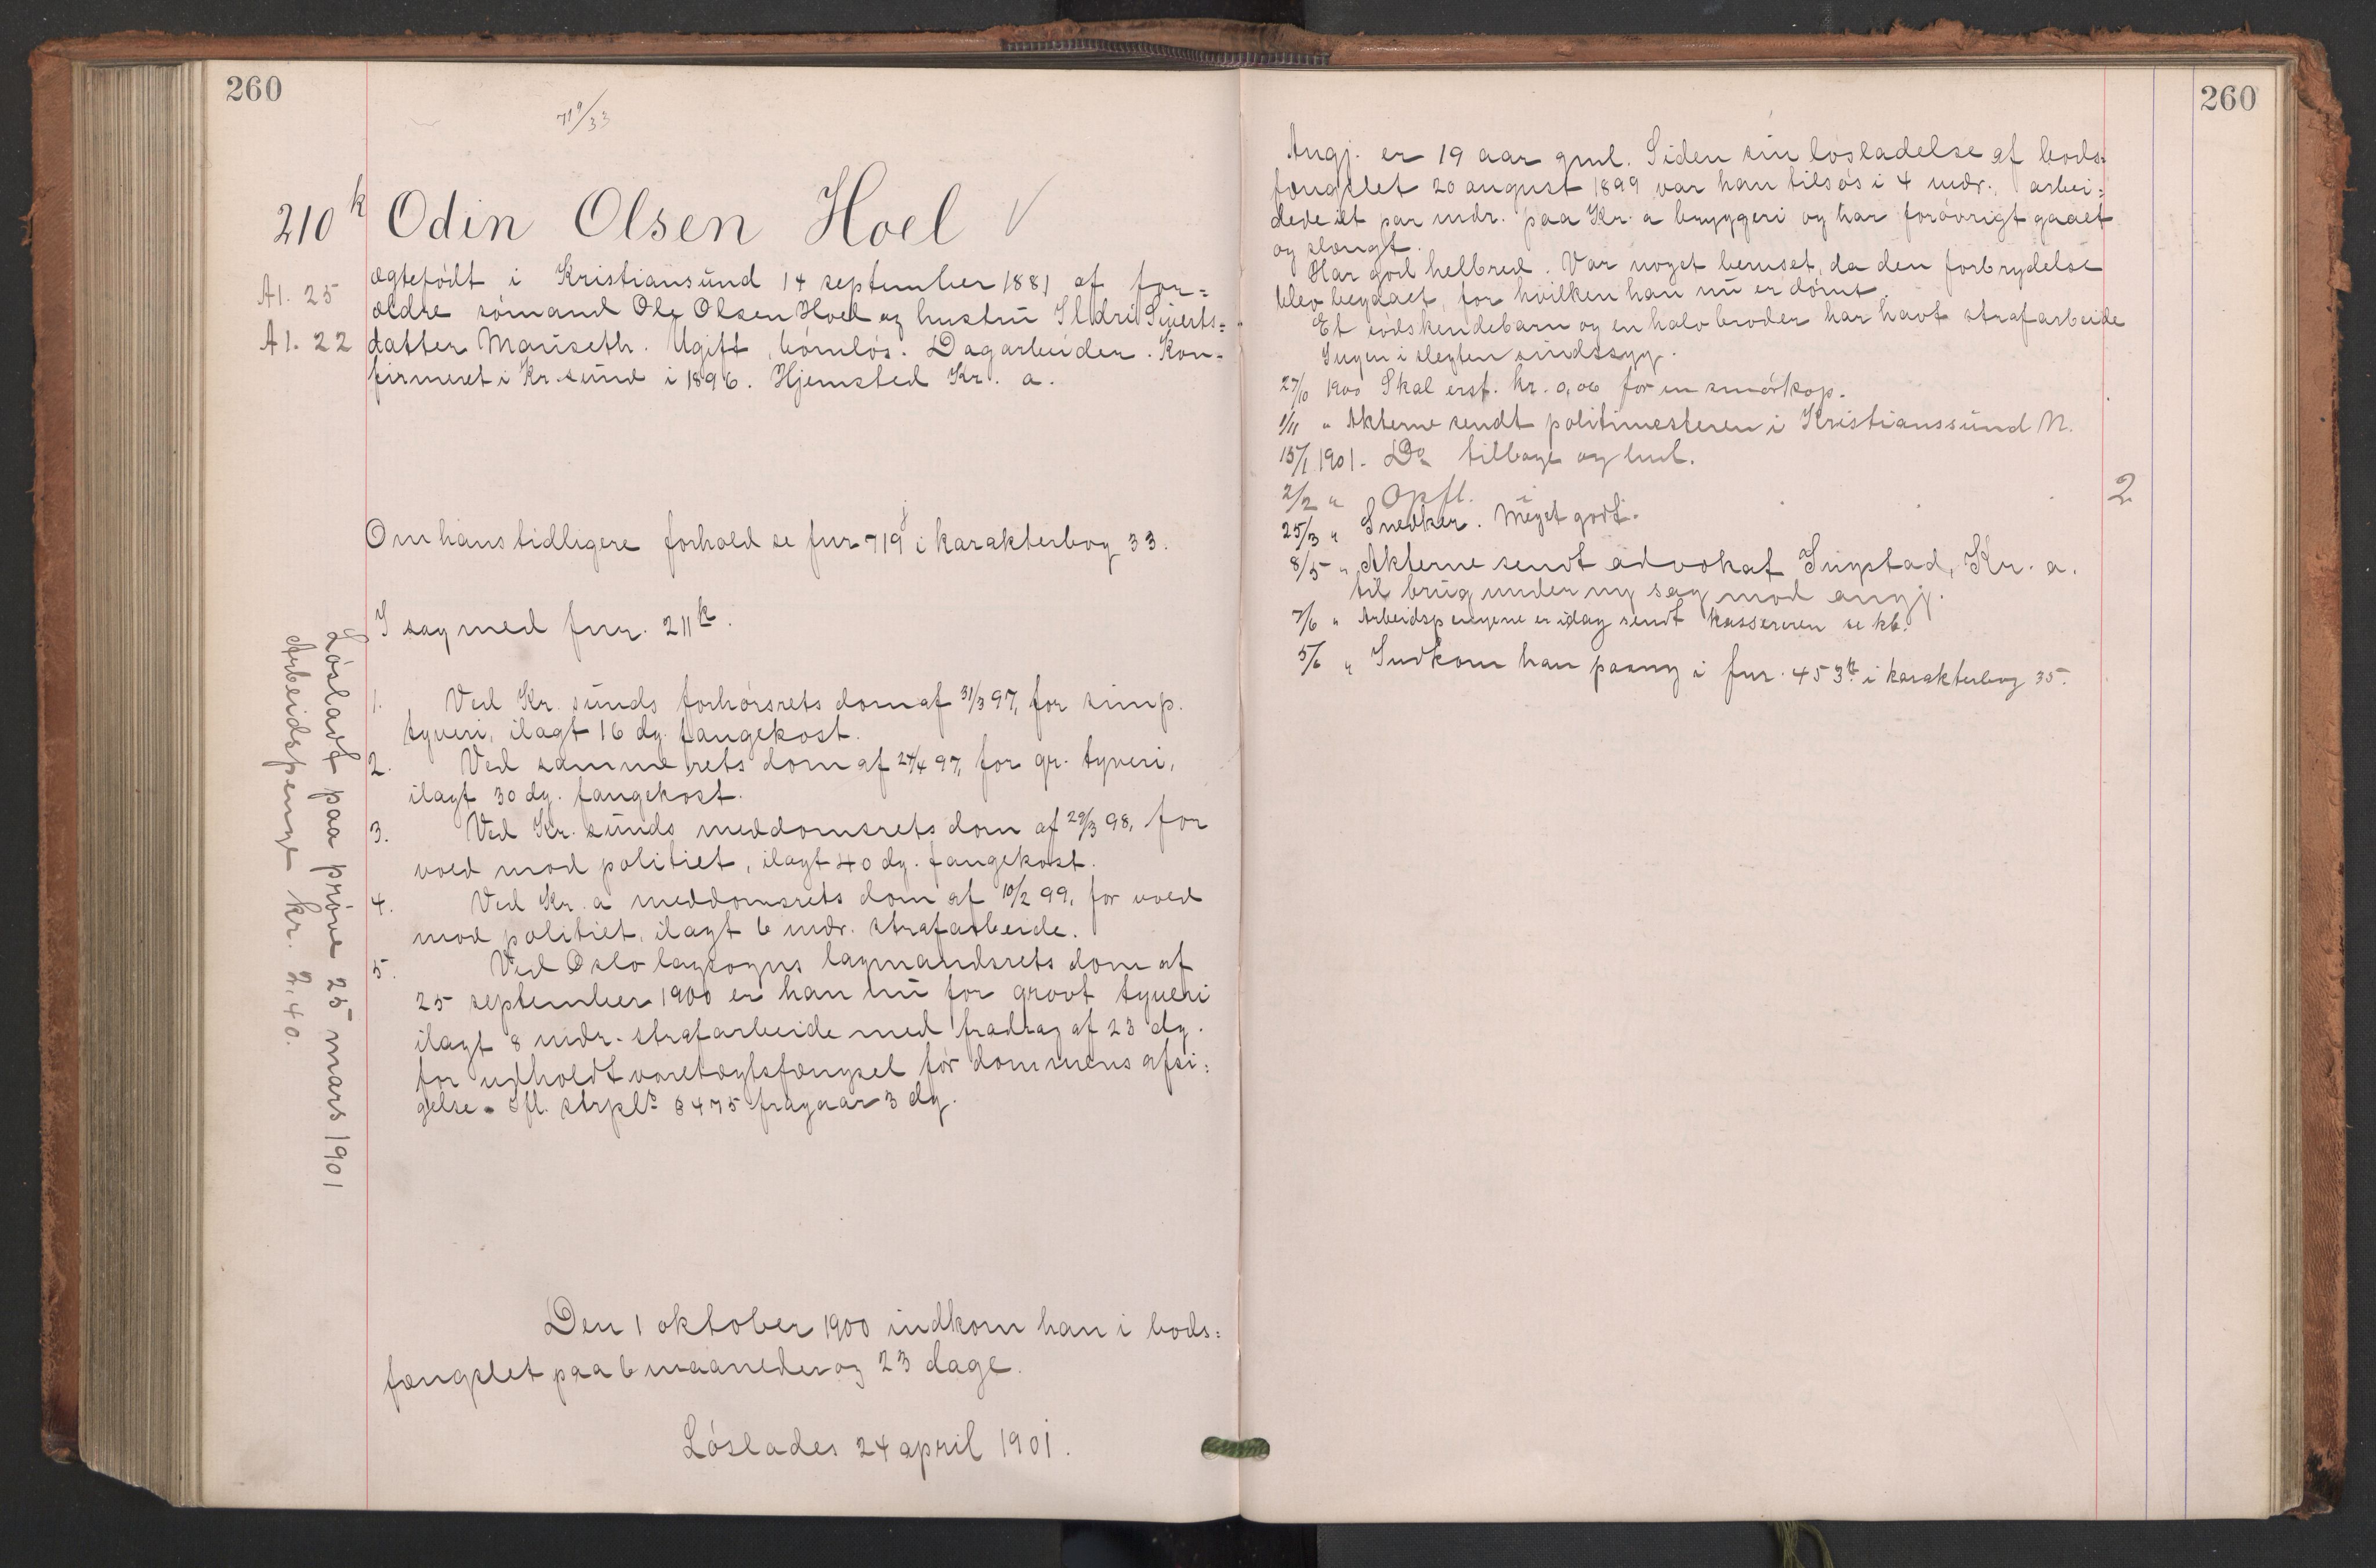 260
719/33
210k Odin Olsen Hoel
Al. 25
Al. 22
ægtefødt i Kristiansund 14 september 1881 af for=
ældre sømand Ole Olsen Hoel og hustru Ildri Siverts=
datter Mauseth. Ugift, børnløs. Dagarbeider. Kon=
firmeret i Kr.sund i 1896. Hjemsted Kr. a.
Om hans tidligere forhold se fnr 719j i karakterbog 33.
I sag med fnr. 211k.
1. Ved Kr. sunds forhørsrets dom af 31/3 97, for simp.
tyveri, ilagt 16 dg. fangekost.
2. Ved samme rets dom af 24/4 97, for gr. tyveri,
ilagt 30 dg. fangekost.
3. Ved Kr. sunds meddomsrets dom af 29/3 98, for
vold mod politiet, ilagt 40 dg. fangekost.
4. Ved Kr. a meddomsrets dom af 10/2 99, for vold
mod politiet, ilagt 6 mdr. strafarbeide.
5. Ved Oslo lagsogns lagmandsrets dom af
25 september 1900 er han nu for grovt tyveri
ilagt 8 mdr. strafarbeide med fradrag af 23 dg.
for udholdt varetægtsfængsel før dommens afsi=
gelse. Ifl. strpl's § 475 fragaar 3 dg.
Løsladt paa prøve 25 mars 1901
Arbeidspenge kr. 2,40.
Den 1 oktober 1900 indkom han i bods=
fængslet paa 6 maaneder og 23 dage.
Løslades 24 april 1901.
260
Angj. er 19 aar gml. Siden sin løsladelse af bods=
fængslet 20 august 1899 var han tilsøs i 4 mdr., arbei=
dede et par mdr. paa Kr. a bryggeri og har forøvrigt gaaet
og slængt.
Har god helbred. Var noget beruset, da den forbrydelse
blev begaaet, for hvilken han nu er dømt.
Et sødskendebarn og en halvbroder har havt strafarbeide
Ingen i slegten sindssyg.
27/10 1900 Skal erst. kr. 0,06 for en smørkop.
1/11 " Akterne sendt politimesteren i Kristianssund N.
15/1 1901. Do tilbage og henl.
2/2 " Opfl. 2
25/3 " Snedker. Meget godt.
8/5 " Akterne sendt advokat Ingstad, Kr. a.
til brug under ny sag mod angj.
7/6 " Arbeidspengene er idag sendt kassereren se kb.
5/6 " Indkom han paany i fnr. 453k i karakterbog 35.